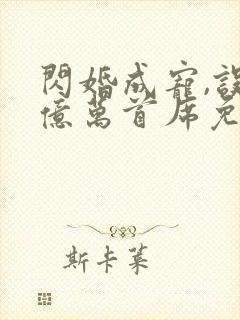 閃婚成寵,誤
億萬首席免
斯卡萊